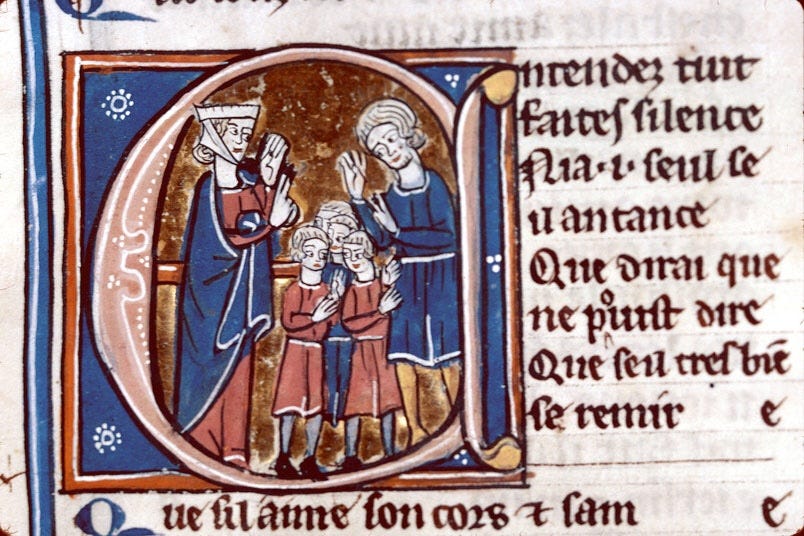 Entendez tuit
faites silence
Nia·i· seul se
il an tance
Que dirai que
ne pͦuist dire
Que seu tres biē
se remir e
Que sil aime son cors ⁊ sam e